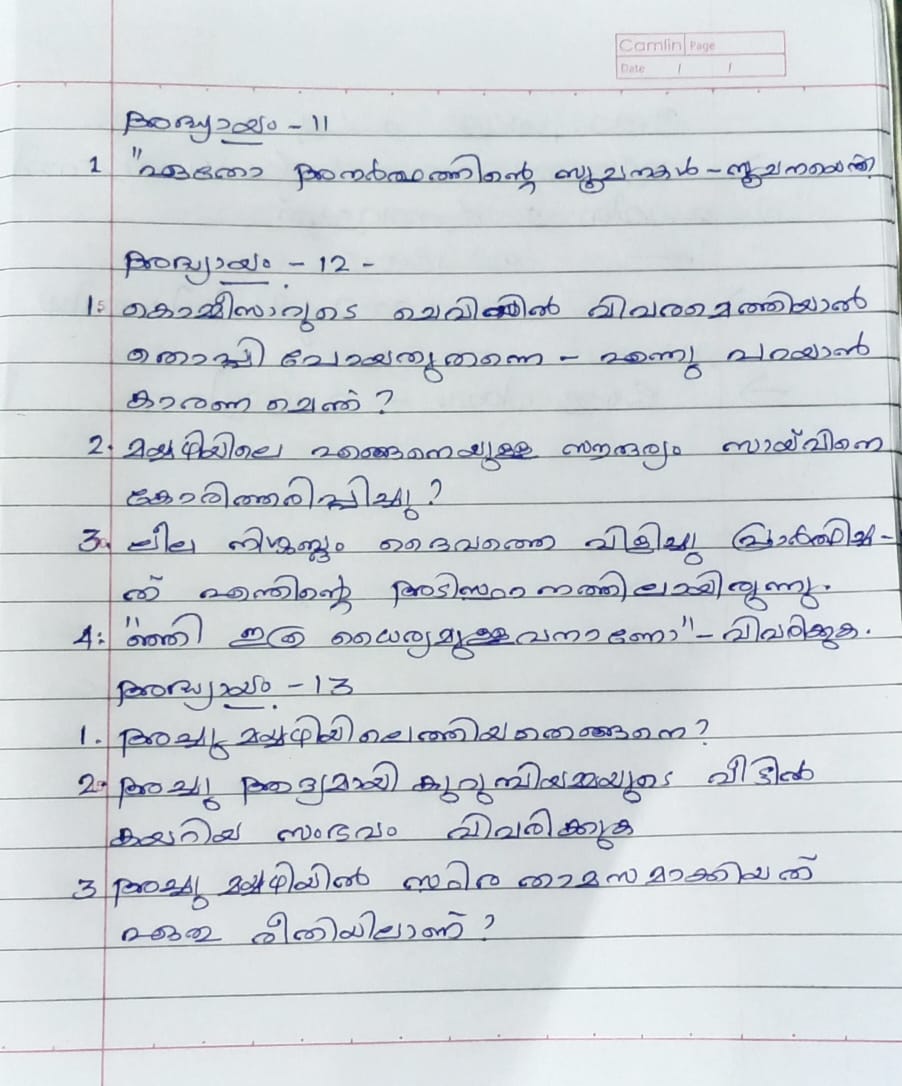 Camlin Page
Date / /
അദ്ധ്യായം - 11
1 "ഏതോ അനർത്ഥത്തിന്റെ സൂചനകൾ - സൂചനയെന്ത്
അദ്ധ്യായം - 12 -
1. കൊമ്മീസാറുടെ ചെവിയിൽ വിവരമെത്തിയാൽ
തൊപ്പി പോയതുതന്നെ - എന്നു പറയാൻ
കാരണമെന്ത്?
2. മയ്യഴിയിലെ എങ്ങനെയുള്ള സൗന്ദര്യം സായ്‌വിനെ
കോരിത്തരിപ്പിച്ചു?
3. ലീല നിശ്ശബ്ദം ദൈവത്തെ വിളിച്ചു പ്രാർത്ഥിച്ച-
ത് എന്തിന്റെ അടിസ്ഥാനത്തിലായിരുന്നു.
4: "ഞ്ഞി ഇത്ര ധൈര്യമുള്ളവനാണോ" - വിവരിക്കുക.
അദ്ധ്യായം - 13
1. അച്ചു മയ്യഴിയിലെത്തിയതെങ്ങനെ?
2. അച്ചു ആദ്യമായി കുറുമ്പിയമ്മയുടെ വീട്ടിൽ
കയറിയ സംഭവം വിവരിക്കുക
3 അച്ചു മയ്യഴിയിൽ സ്ഥിരതാമസമാക്കിയത്
ഏതു രീതിയിലാണ്?